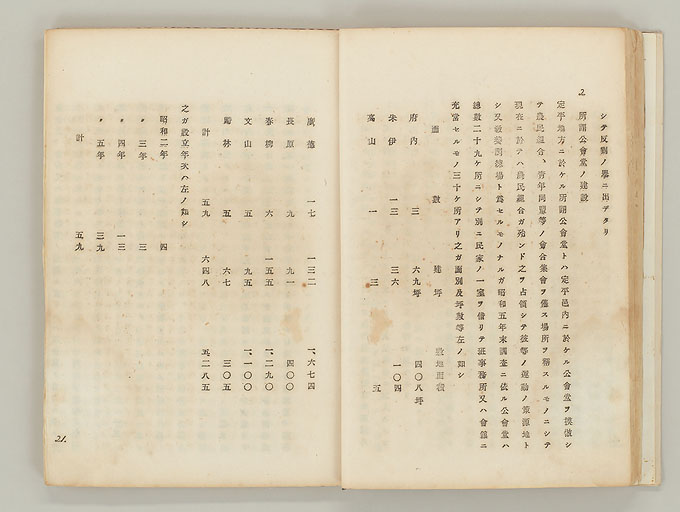 シテ反對ノ擧ニ出デタリ
2 所謂公會堂ノ建設
定平地方ニ於ケル所謂公會堂トハ定平邑內ニ於ケル公會堂ヲ模倣シ
テ農民組合、靑年同盟等ノ會合集會ヲ催ス場所ヲ稱スルモノニシテ
現在ニ於テハ農民組合ガ殆ンド之ヲ占領シテ彼等ノ運動ノ策源地ト
シ又敎養訓練場ト爲セルモノナルガ昭和五年末調査ニ依ル公會堂ハ
總數二十九ケ所ニシテ別ニ民家ノ一室ヲ借リテ班事務所又ハ會館ニ
充當セルモノ三十ケ所アリ之ガ面別及坪數等左ノ如シ
面 數 建坪 敷地面積
府內 三 六九坪 四〇八坪
朱伊 一三 三六 一〇四
高山 一 三 五
廣德 一七 一三二 一、六七四
長原 九 九一 四〇〇
春柳 六 一五五 一、二九〇
文山 五 九五 一、一〇〇
歸林 五 六七 三〇五
計 五九 六四八 五、二八五
之ガ設立年次ハ左ノ如シ
昭和二年 四
〃 三年 三
〃 四年 一三
〃 五年 三九
計 五九
21.